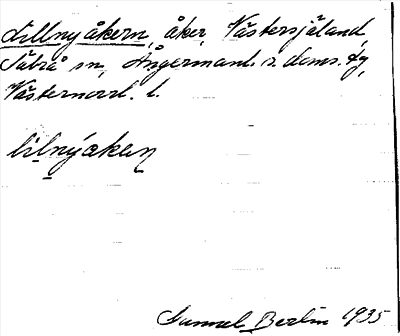 Lillnyåkern, åker, Västersjäland,
Säbrå sn, Ångermanl. s. doms. tg,
Västernorrl. l.
lìlnýạkeṇ
Samuel Berlin 1935